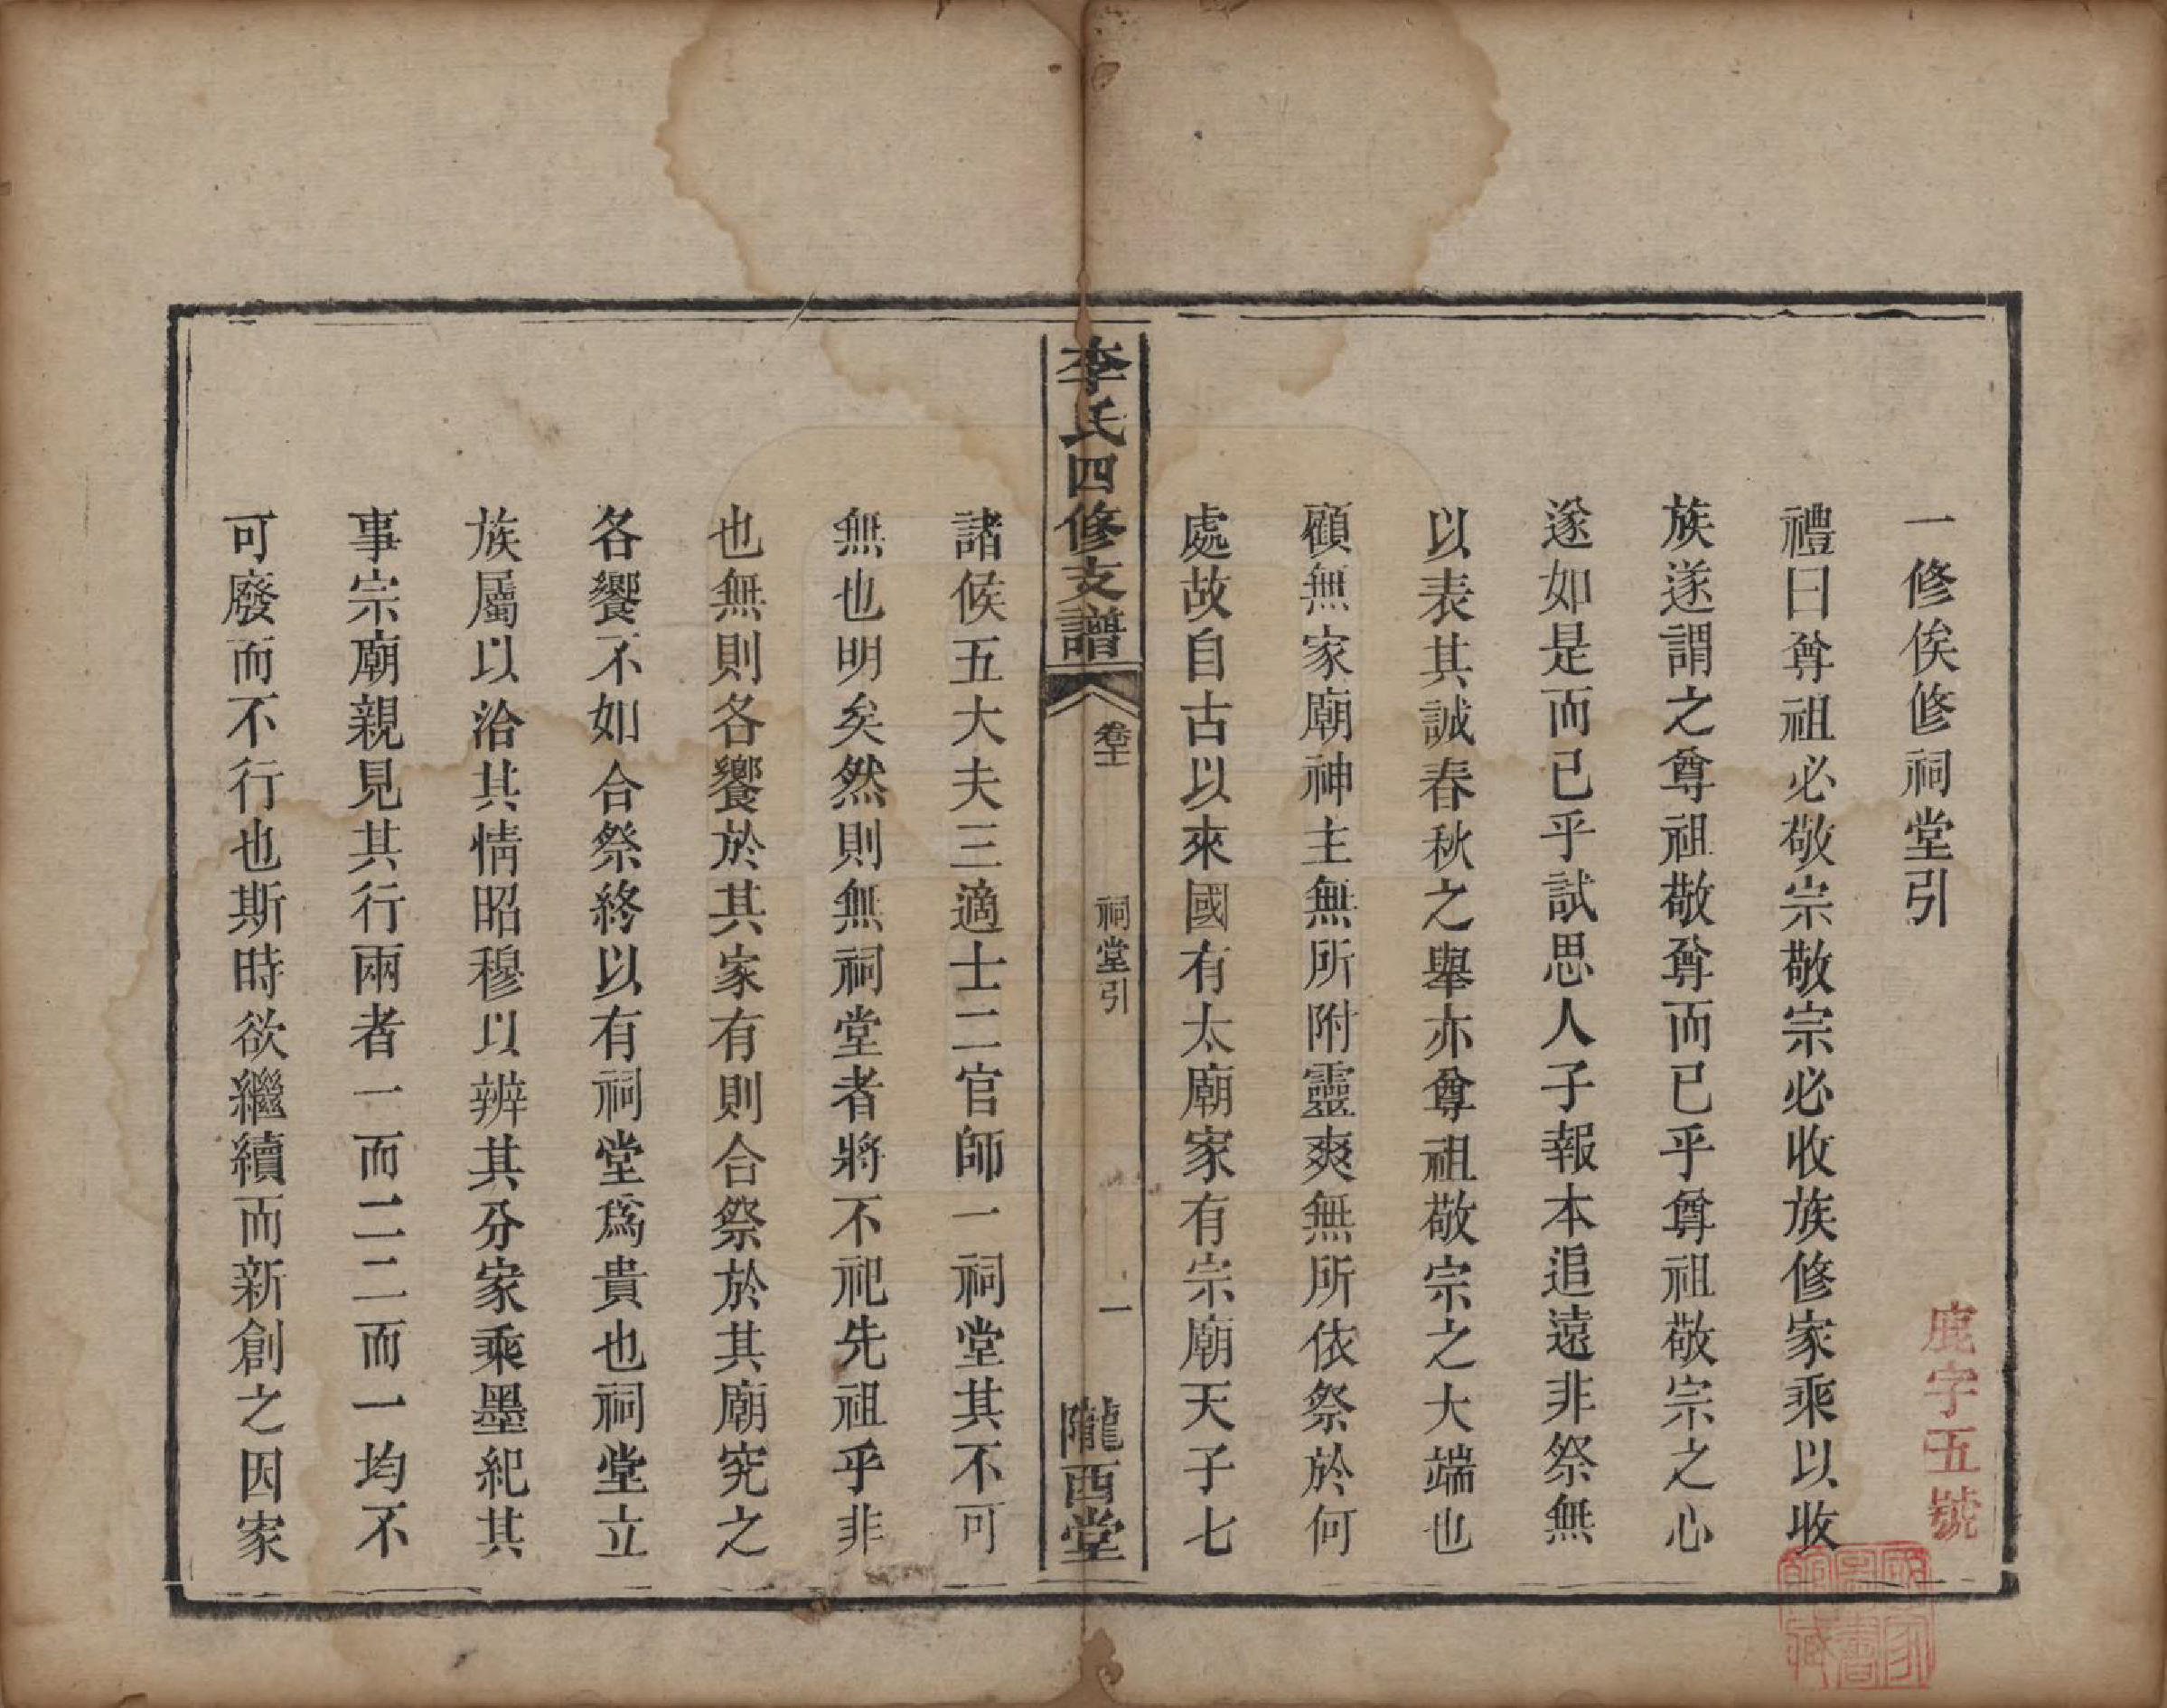 一修俟修祠堂引
禮曰尊祖必敬宗敬宗必收族修家乘以收
族遂謂之尊祖敬尊而已乎尊祖敬宗之心
遂如是而已乎試思人子報本追遠非祭無
以表其誠春秋之舉亦尊祖敬宗之大端也
顧無家廟神主無所附靈爽無所依祭於何
處故自古以來國有太廟家有宗廟天子七
李氏四修支譜
卷十
祠堂引
一
隴西堂
諸侯五大夫三適士二官師一祠堂其不可
無也明矣然則無祠堂者將不祀先祖乎非
也無則各饗於其家有則合祭於其廟究之
各饗不如合祭終以有祠堂爲貴也祠堂立
族屬以洽其情昭穆以辨其分家乘墨紀其
事宗廟親見其行兩者一而二二而一均不
可廢而不行也斯時欲繼續而新創之因家
鹿字五號
國家圖書館藏